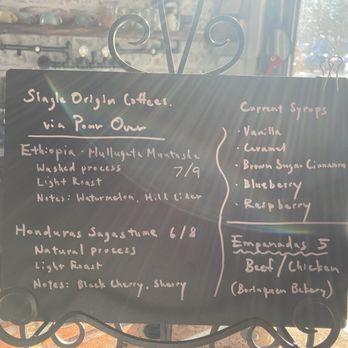 Single Origin Coffees.
via Pour Over
Ethiopia - Mullugeta Muntasha
Washed process 7/9
Light Roast
Notes: Watermelon, Mild Cider
Honduras Sagastume 6/8
Natural process
Light Roast
Notes: Black Cherry, Sherry
Current Syrups
· Vanilla
· Caramel
· Brown Sugar Cinnamon
· Blueberry
· Raspberry
Empanadas 5
Beef/Chicken
(Borinquen Bakery)